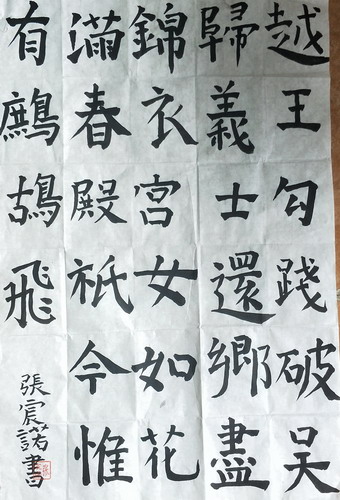 越王勾踐破吴
歸義士還鄉盡
錦衣宮女如花
滿春殿祇今惟
有鷓鴣飛
張宸諾書